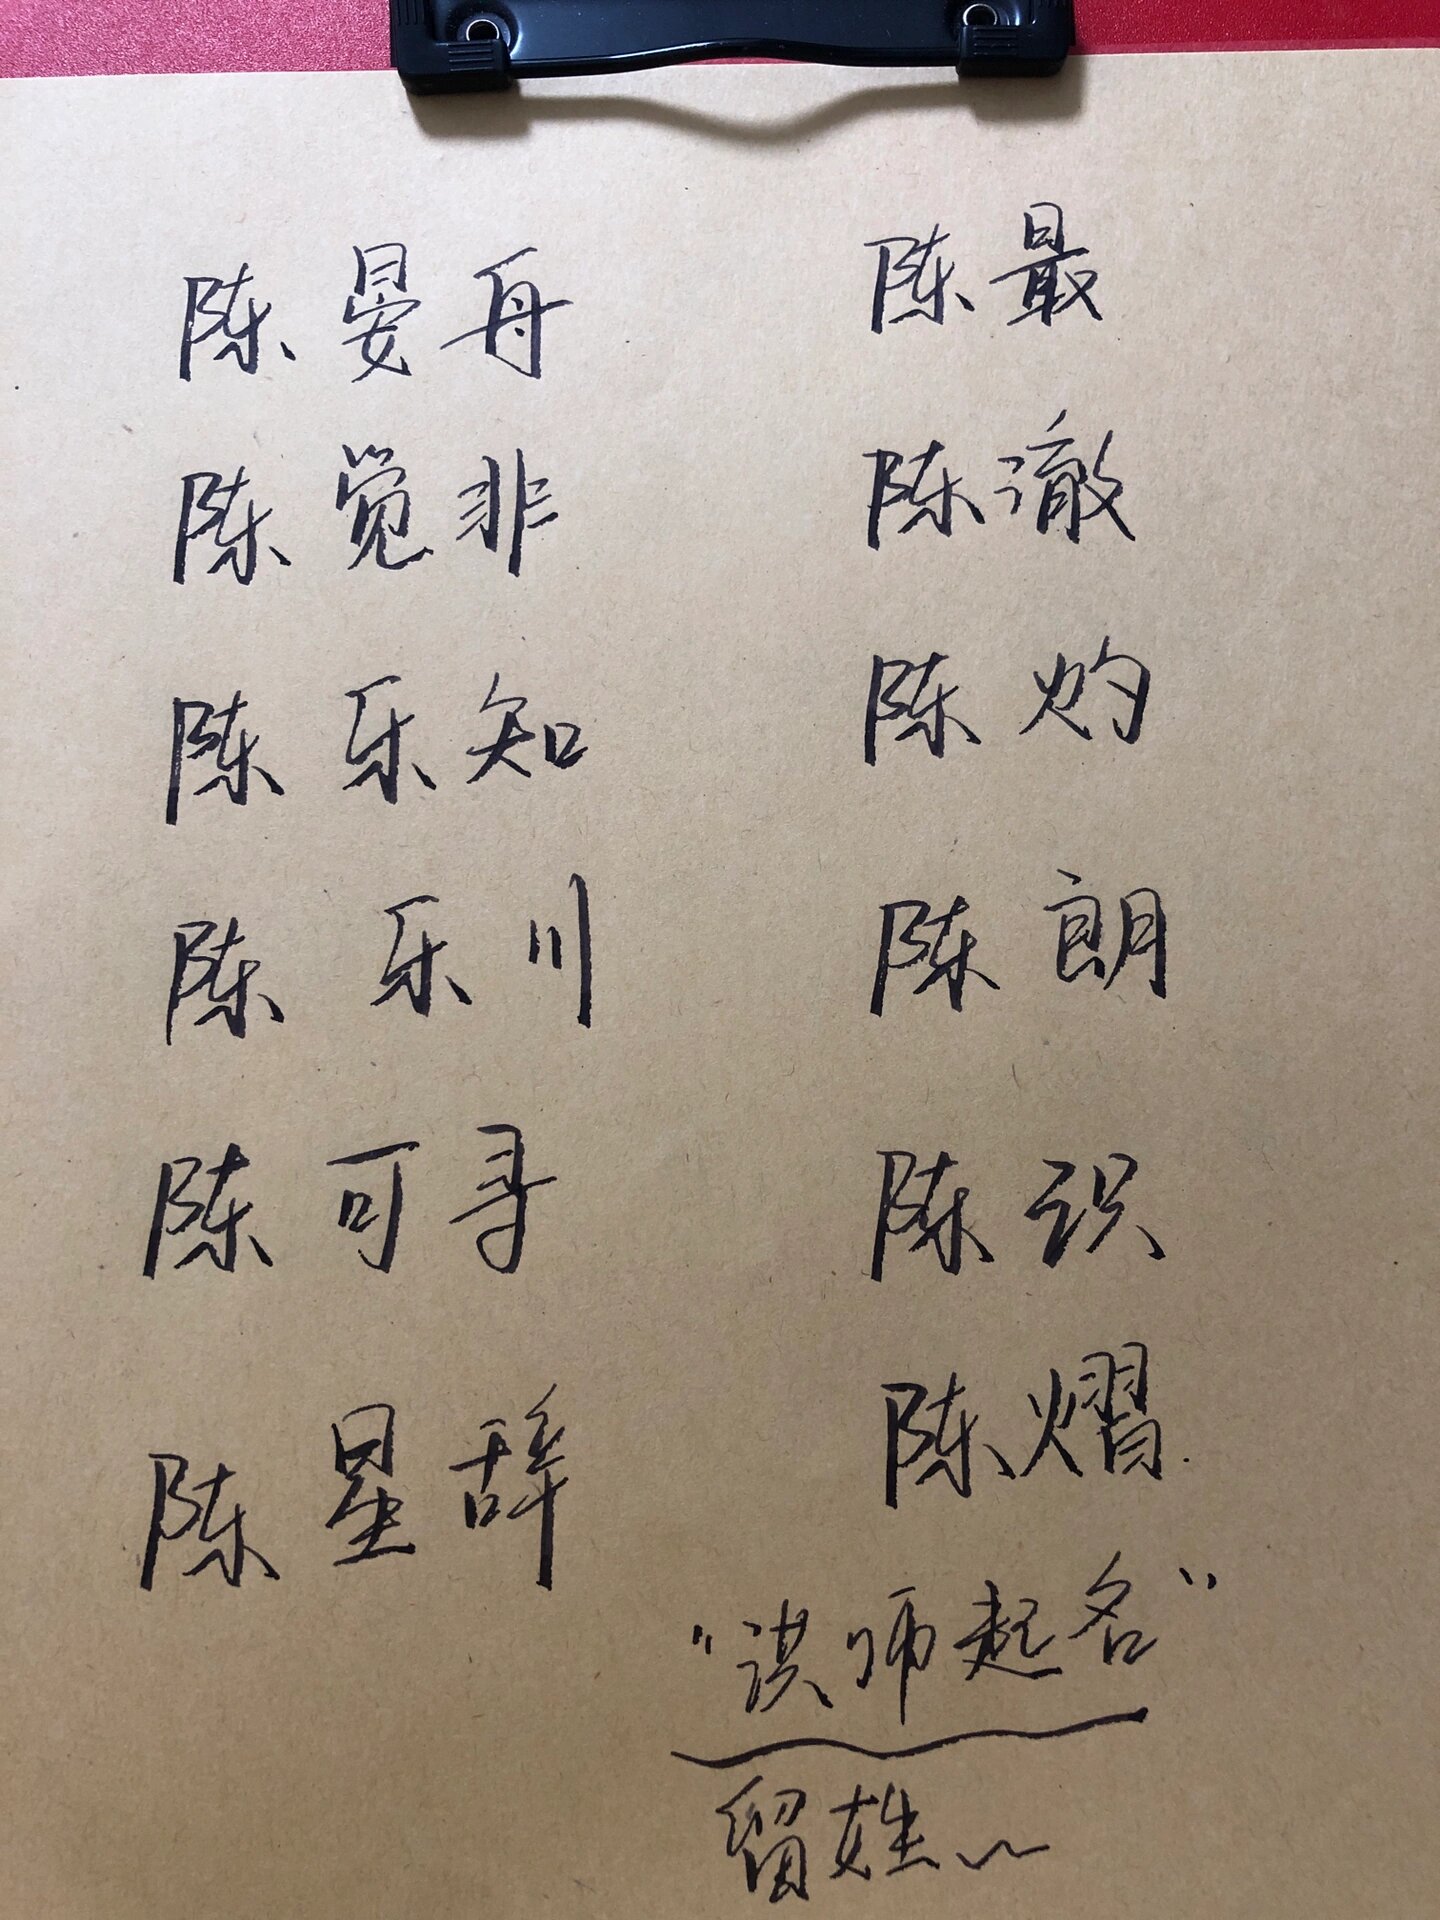 陈晏舟
陈觉非
陈乐知
陈乐川
陈可寻
陈星辞
陈最
陈澈
陈灼
陈朗
陈识
陈熠
“淇师起名”
留姓~